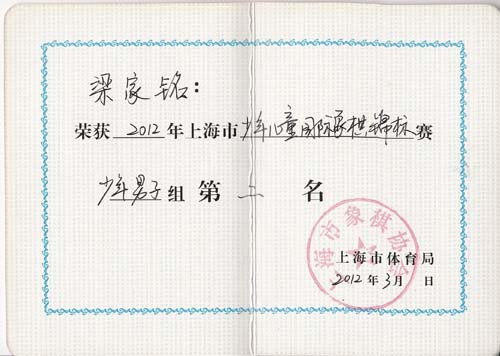 梁家铭：
荣获2012年上海市少年儿童国际象棋锦标赛
少年男子组第二名
上海市体育局
2012年3月 日
海市象棋协会